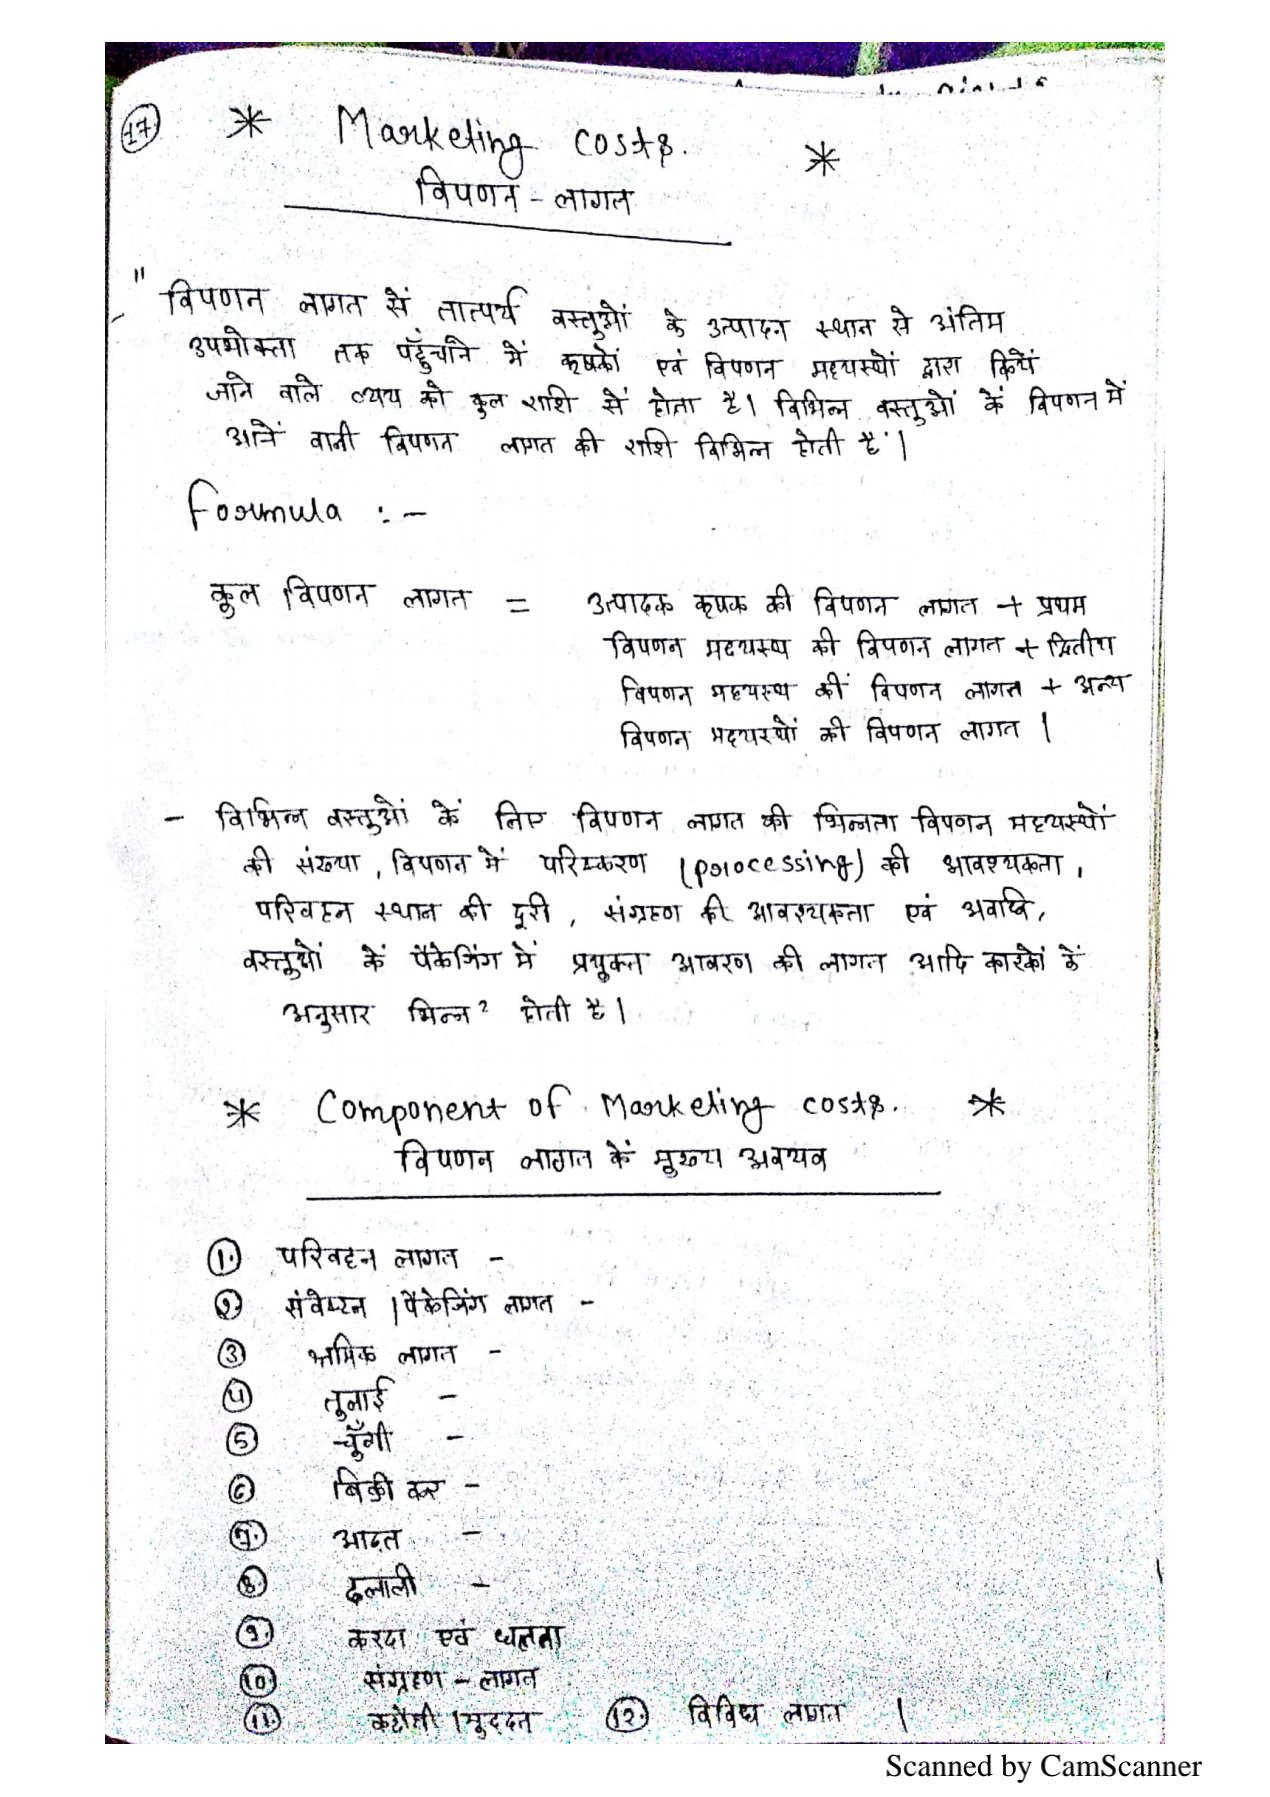 17.
* Marketing costs. *
विपणन - लागत
" विपणन लागत सें तात्पर्य वस्तुओं के उत्पादन स्थान से अंतिम
उपभोक्ता तक पहुँचाने में कृषकों एवं विपणन मध्यस्थों द्वारा कियें
जाने वाले व्यय की कुल राशि सें होता है। विभिन्न वस्तुओं कें विपणन में
आनें वाली विपणन लागत की राशि विभिन्न होती हैं।
Formula :-
कुल विपणन लागत = उत्पादक कृषक की विपणन लागत + प्रथम
विपणन मध्यस्थ की विपणन लागत + द्वितीय
विपणन मध्यस्थ कीं विपणन लागत + अन्य
विपणन मध्यस्थों की विपणन लागत।
- विभिन्न वस्तुओं कें लिए विपणन लागत की भिन्नता विपणन मध्यस्थों
की संख्या, विपणन में परिष्करण (processing) की आवश्यकता,
परिवहन स्थान की दूरी, संग्रहण की आवश्यकता एवं अवधि,
वस्तुओं कें पैकेजिंग में प्रयुक्त आवरण की लागत आदि कारकों कें
अनुसार भिन्न २ होती है।
* Component of Marketing costs. *
विपणन लागत कें मुख्य अवयव
1. परिवहन लागत -
2 संवेष्टन । पैकेजिंग लागत -
3 श्रमिक लागत -
4 तुलाई -
5 चुँगी -
6 बिक्री कर -
7. आढ़त -
8. दलाली -
9. करदा एवं धलता
10. संग्रहण - लागत
11. कटौती । मुद्दत 12. विविध लागत ।
Scanned by CamScanner